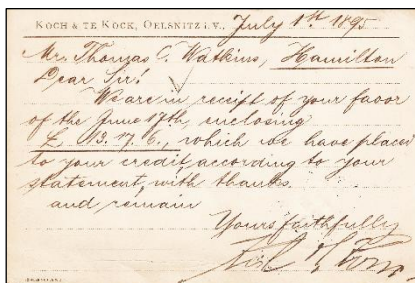 KOCH & TE KOCK, OELSNITZ i. V., July 1st 1895
Mr. Thomas C. Watkins, Hamilton
Dear Sir!
We are in receipt of your favor
of the June 17th, enclosing
£ 13. 17. 6., which we have placed
to your credit, according to your
statement, with thanks.
and remain
Yours faithfully